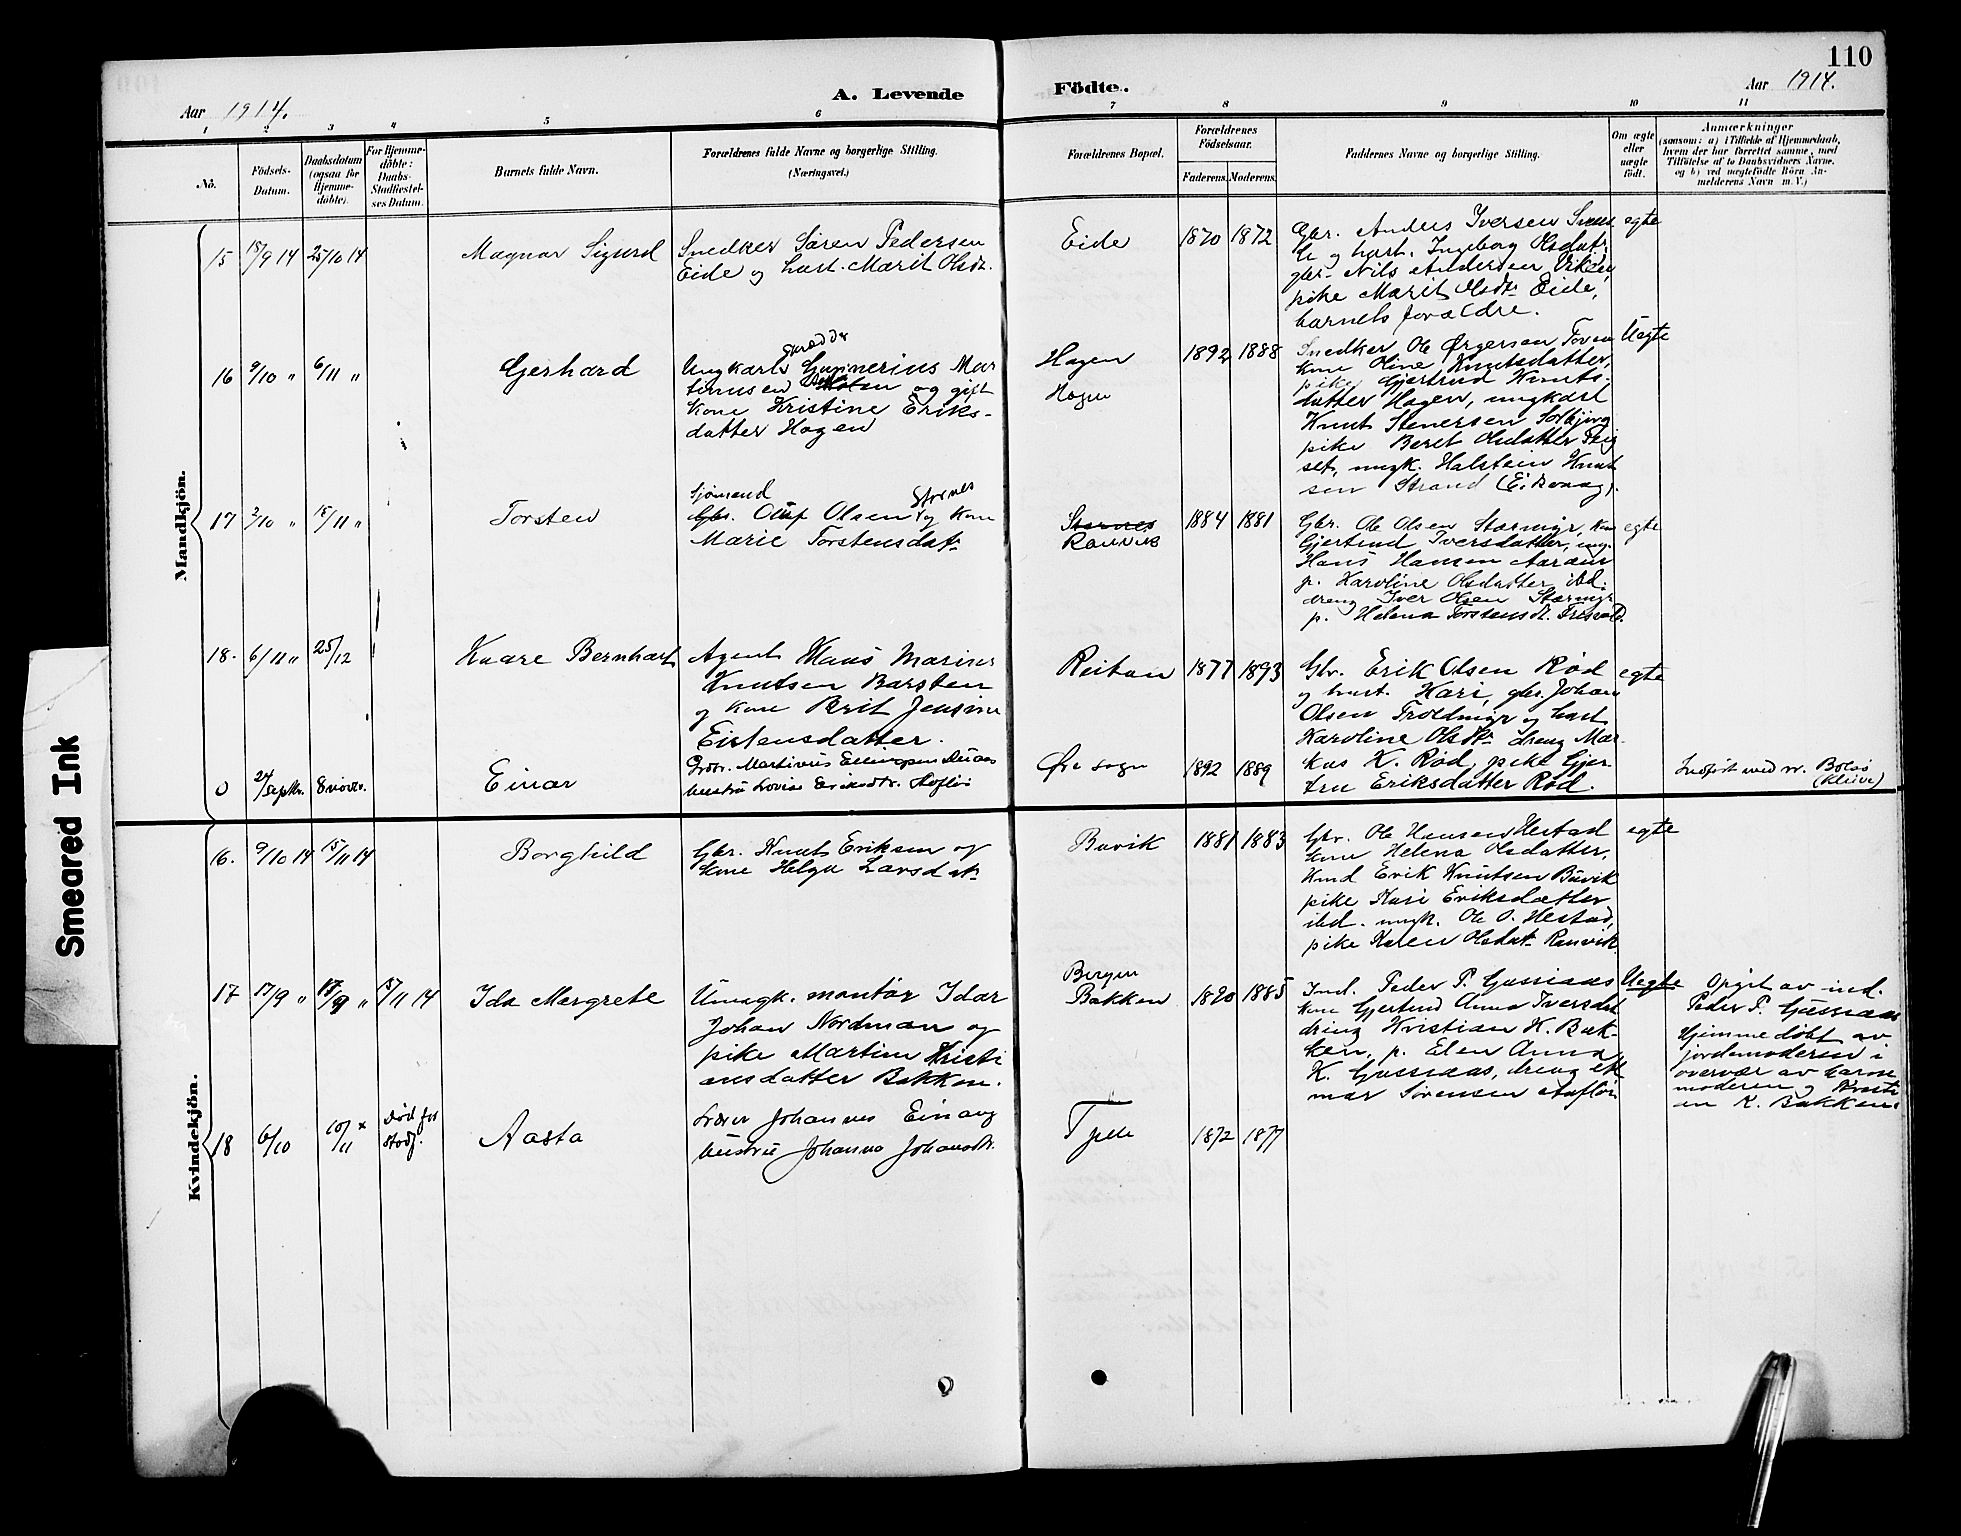 110
Aar 1914.
A. Levende
Födte.
Aar 1914.
1 2 3 4 5 6 7 8 9 10 11
No.
Födsels-
Datum.
Daabsdatum
(ogsaa for
Hjemme-
døbte).
For Hjemme-
döbte:
Daabs-
Stadfæstel-
ses Datum.
Barnets fulde Navn.
Forældrenes fulde Navne og borgerlige Stilling.
(Næringsvei.)
Forældrenes Bopæl.
Forældrenes
Födselsaar.
Faderens.
Moderens.
Faddernes Navne og borgerlige Stilling.
Om ægte
eller
uægte
födt.
Anmærkninger
(saasom: a) i Tilfælde af Hjemmedaab,
hvem der har forrettet samme, med
Tilföielse af to Daabsvidners Navne,
og b) ved uægtefödte Börn An-
melderens Navn m. V.)
Mandkjön.
15 18/9 14 25/10 14
Magnar Sigurd
Snedker Søren Pedersen
Eide og hust. Marit Olsdr.
Eide
1870 1872
Gbr. Anders Iversen
og hust. Ingeborg Olsdatr
gbr. Nils Andersen Viken,
pike Marit Olsdtr Eide,
barnets forældre.
egte
16 9/10 " 6/11 "
Gerhard
Skrædder
Ungkarl Gunnerius Mar
tinussen og gift
kone Kristine Eriks-
datter Hagen
Hagen
Hagen
1892 1888
Snedker Ole Ørgersen Toven
kone Oline Knutsdatter,
pike Gjertrud Knuts-
datter Hagen, ungkarl
Knut Stenersen Solbjørg
pike Beret Olsdatter
set, ungk. Halstein Knut
sen Strand (Eidsvaag).
Uegte
17 2/10 " 15/11 "
Torsten
Sjømand
Gbr. Oluf Olsen Stornes og kone
Marie Torstensdatr
Stornes
Ranvik
1884 1881
Gbr. Ole Olsen Stormyr, kone
Gjertrud Iversdatter, ung.
Hans Hansen
p. Karoline Olsdatter ibd.
dreng Iver Olsen Stormyr
p. Helena Torstensdt.
egte
18. 6/11 " 25/12
Kaare Bernhart
Agent Hans Marius
Knutsen Barsten
og kone Brit Jensine
Eistensdatter.
Reitan
1877 1893
Gbr. Erik Olsen Rød
og hust. Kari, gbr. Johan
Olsen Troldmyr og hust
Karoline Olsdtr dreng Mar-
kus K. Rød, pike Gjer-
tru Eriksdatter Rød.
egte
0 24/septbr. 8 novbr.
Einar
Gbr. Martinus Ellingsen
hustru Lovise Eriksdtr.
Øre sogn
1892 1889
Indført med nr. Bolsø
(Kleive)
Kvindekjön.
16. 9/10 14 15/11 14
Borghild
Gbr. Knut Eriksen og
kone Helga Larsdatr
Buvik
1881 1883
Gbr. Ole Hansen Hestad
kone Helena Olsdatter,
Knud Erik Knutsen Buvik
pike Kari Eriksdatter
ibd. ungk. Ole O. Hestad,
pike Karen Olsdatr Ranvik
egte
17 17/9 " 18/9 " 15/11 14
Ida Margrete
Ungk. montør Idar
Johan Nordman og
pike Martine Kristi
ansdatter Bakken.
Bergen
Bakken
1890 1885
Ind. Peder P. Gussiaas
kone Gjertrud Anna Iversdat
dreng Kristian K. Bak-
ken, p. Elen Anna
K. Gussiaas, dreng El
mar Sørensen
Uegte
Opgit av ind.
Peder P. Gussiaas
Hjemmedøbt av
jordemoderen i
overvær av barne
moderen og Kristi
an K. Bakken.
18 6/10 10/11 x
Død før
stadf.
Aasta
Lærer Johannes Einang
hustru Johanna Johansdtr.
Tjelle
1872 1877
Smeared Ink